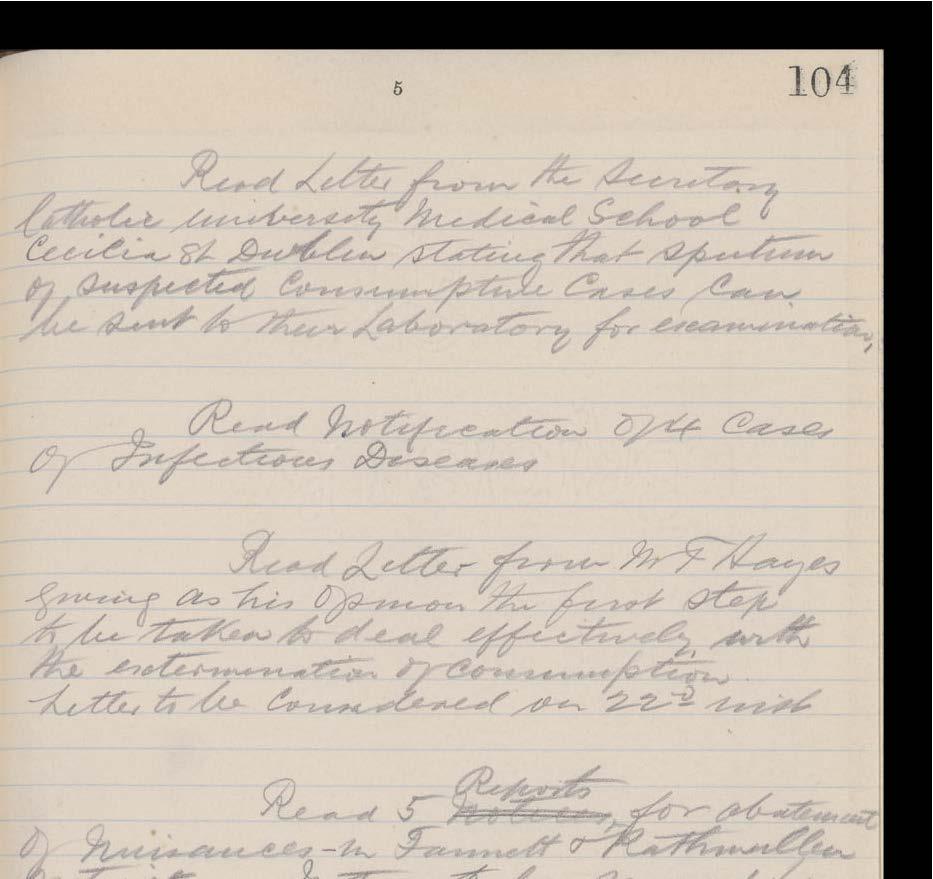 5
104
Read Letter from the Secretary
Catholic University Medical School
Cecilia St Dublin stating that sputum
of suspected Consumptive Cases can
be sent to their Laboratory for examination,
Read Notification of 4 Cases
of Infectious Diseases
Read Letter from Mr F Hayes
giving as his opinion the first step
to be taken to deal effectively with
the extermination of consumption.
Letter to be Considered on 22nd inst
Reports
Read 5 Notices, for abatement
of Nuisances - in Fannett & Rathmullen